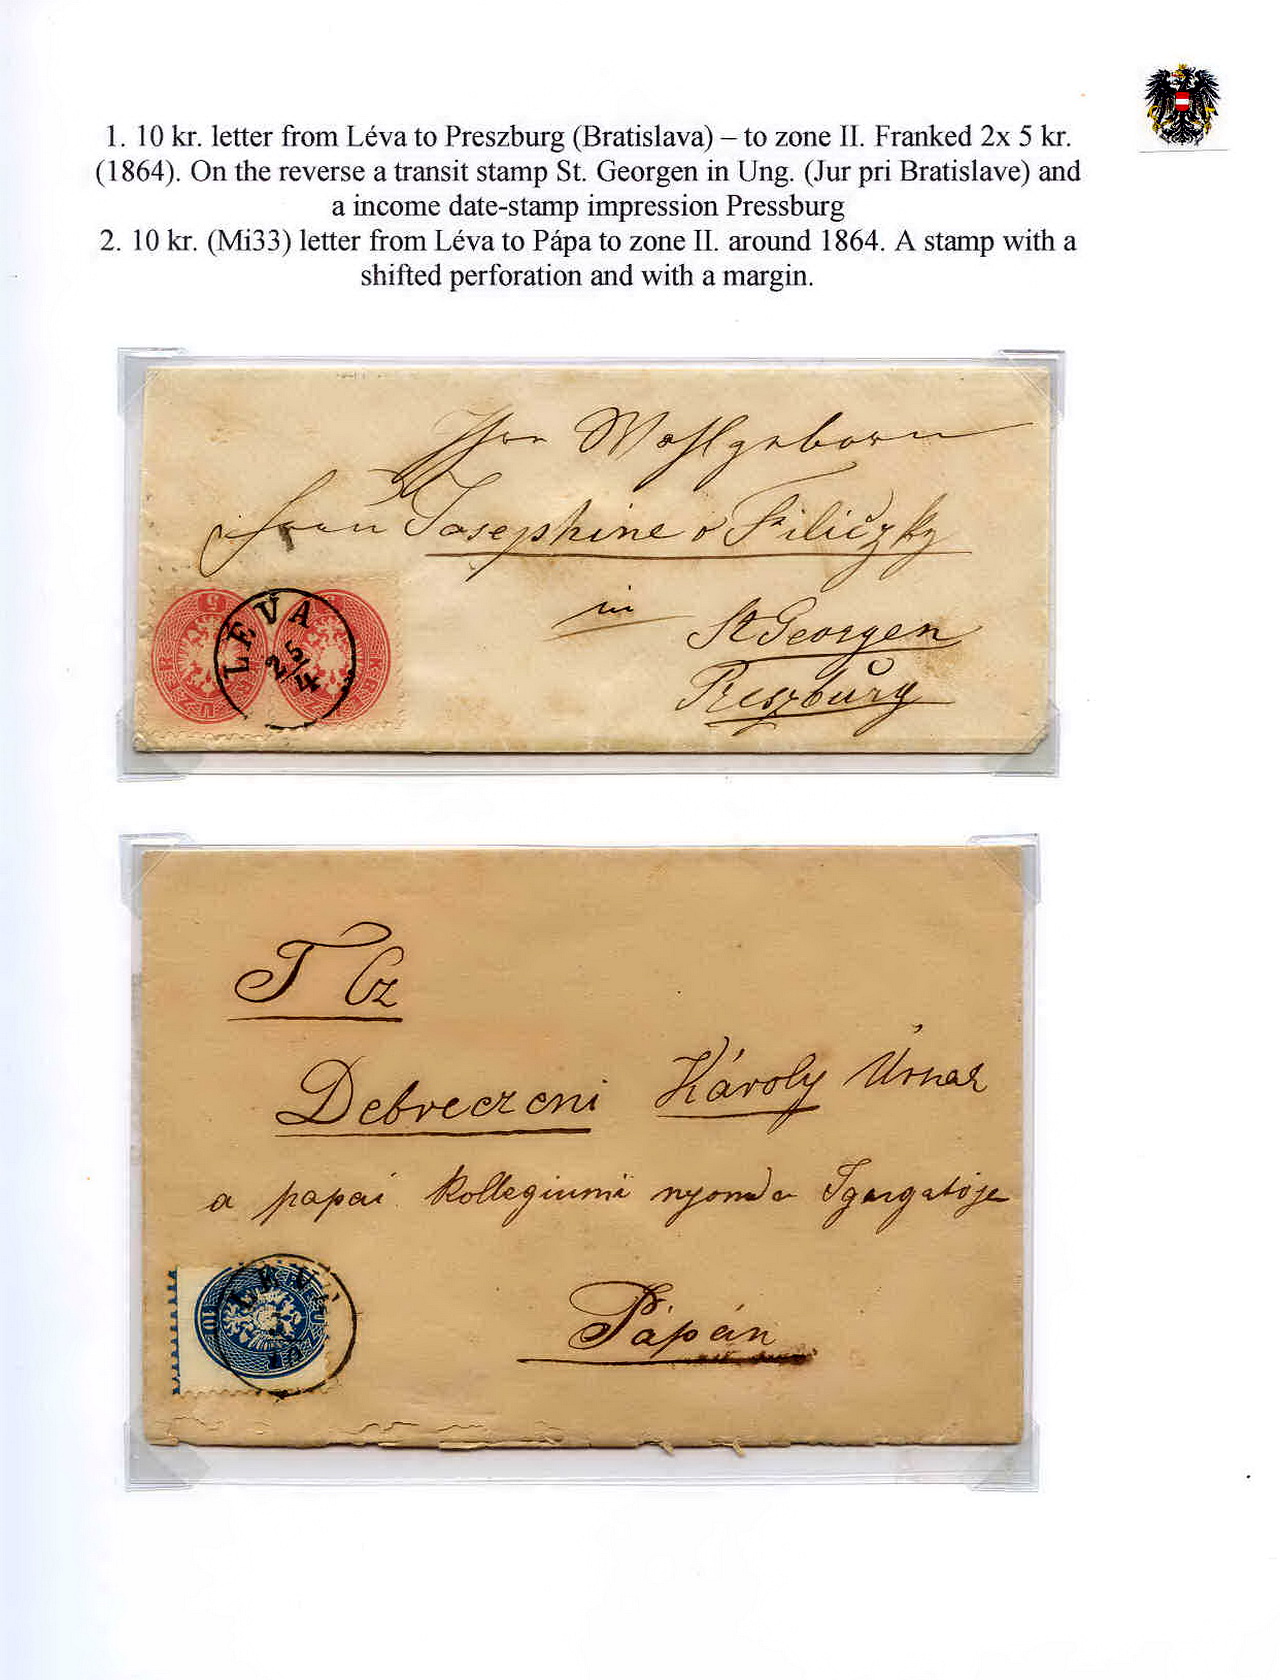 1. 10 kr. letter from Léva to Preszburg (Bratislava) – to zone II. Franked 2x 5 kr.
(1864). On the reverse a transit stamp St. Georgen in Ung. (Jur pri Bratislave) and
a income date-stamp impression Pressburg
2. 10 kr. (Mi33) letter from Léva to Pápa to zone II. around 1864. A stamp with a
shifted perforation and with a margin.
Wohlgeborn
Frau Josephine v Filiczky
in
St Georgen
Preszburg
LÉVA
25/4
T Cz
Debreczeni Károly Úrnak
a papai kollegiumi nyomda Igazgatója
Pápán
10
LÉVA